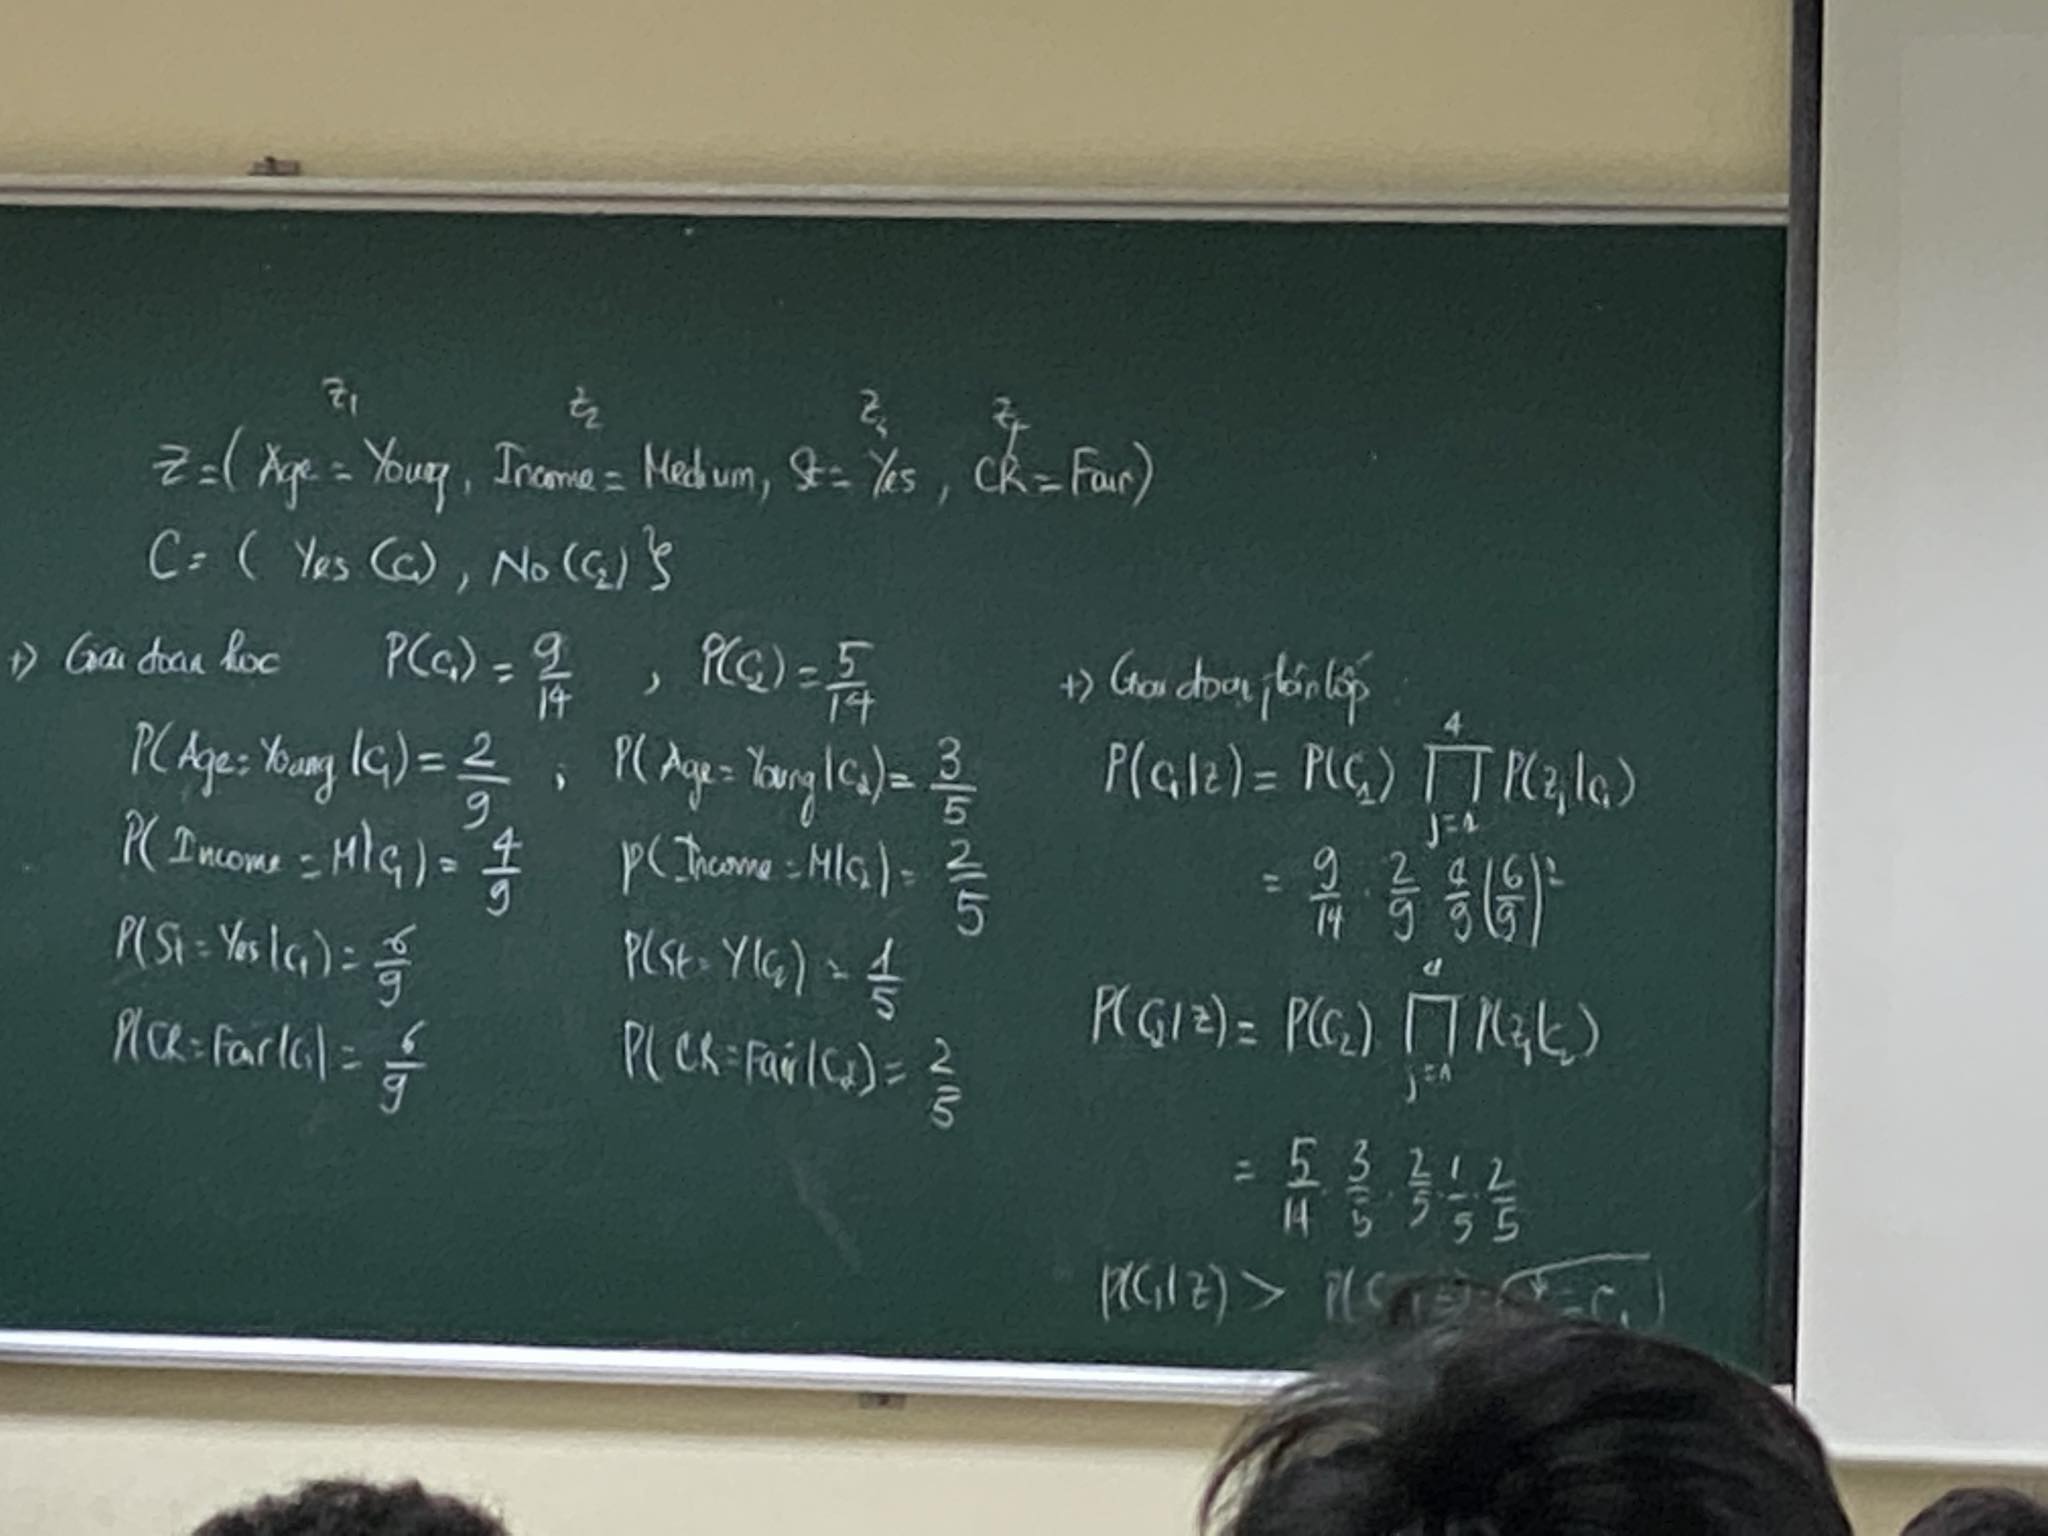 z₁ z₂ z₃ z₄
Z=(Age = Young, Income = Medium, St = Yes, CR = Fair)
C= ( Yes (C₁), No (C₂) }
+) Giai đoạn học P(C₁) = 9/14 , P(C₂) = 5/14
P(Age = Young |C₁) = 2/9 ; P(Age = Young |C₂) = 3/5
P(Income = M|C₁) = 4/9 P(Income = M|C₂) = 2/5
P(St = Yes |C₁) = 6/9 P(St = Y|C₂) = 1/5
P(CR = Fair |C₁) = 6/9 P(CR = Fair |C₂) = 2/5
+) Giai đoạn phân lớp
P(C₁|z) = P(C₁) ∏_{j=1}^{4} P(z_j|C₁)
= 9/14 . 2/9 4/9 (6/9)²
P(C₂|z) = P(C₂) ∏_{j=1}^{4} P(z_j|C₂)
= 5/14 . 3/5 . 2/5 . 1/5 . 2/5
P(C₁|z) >